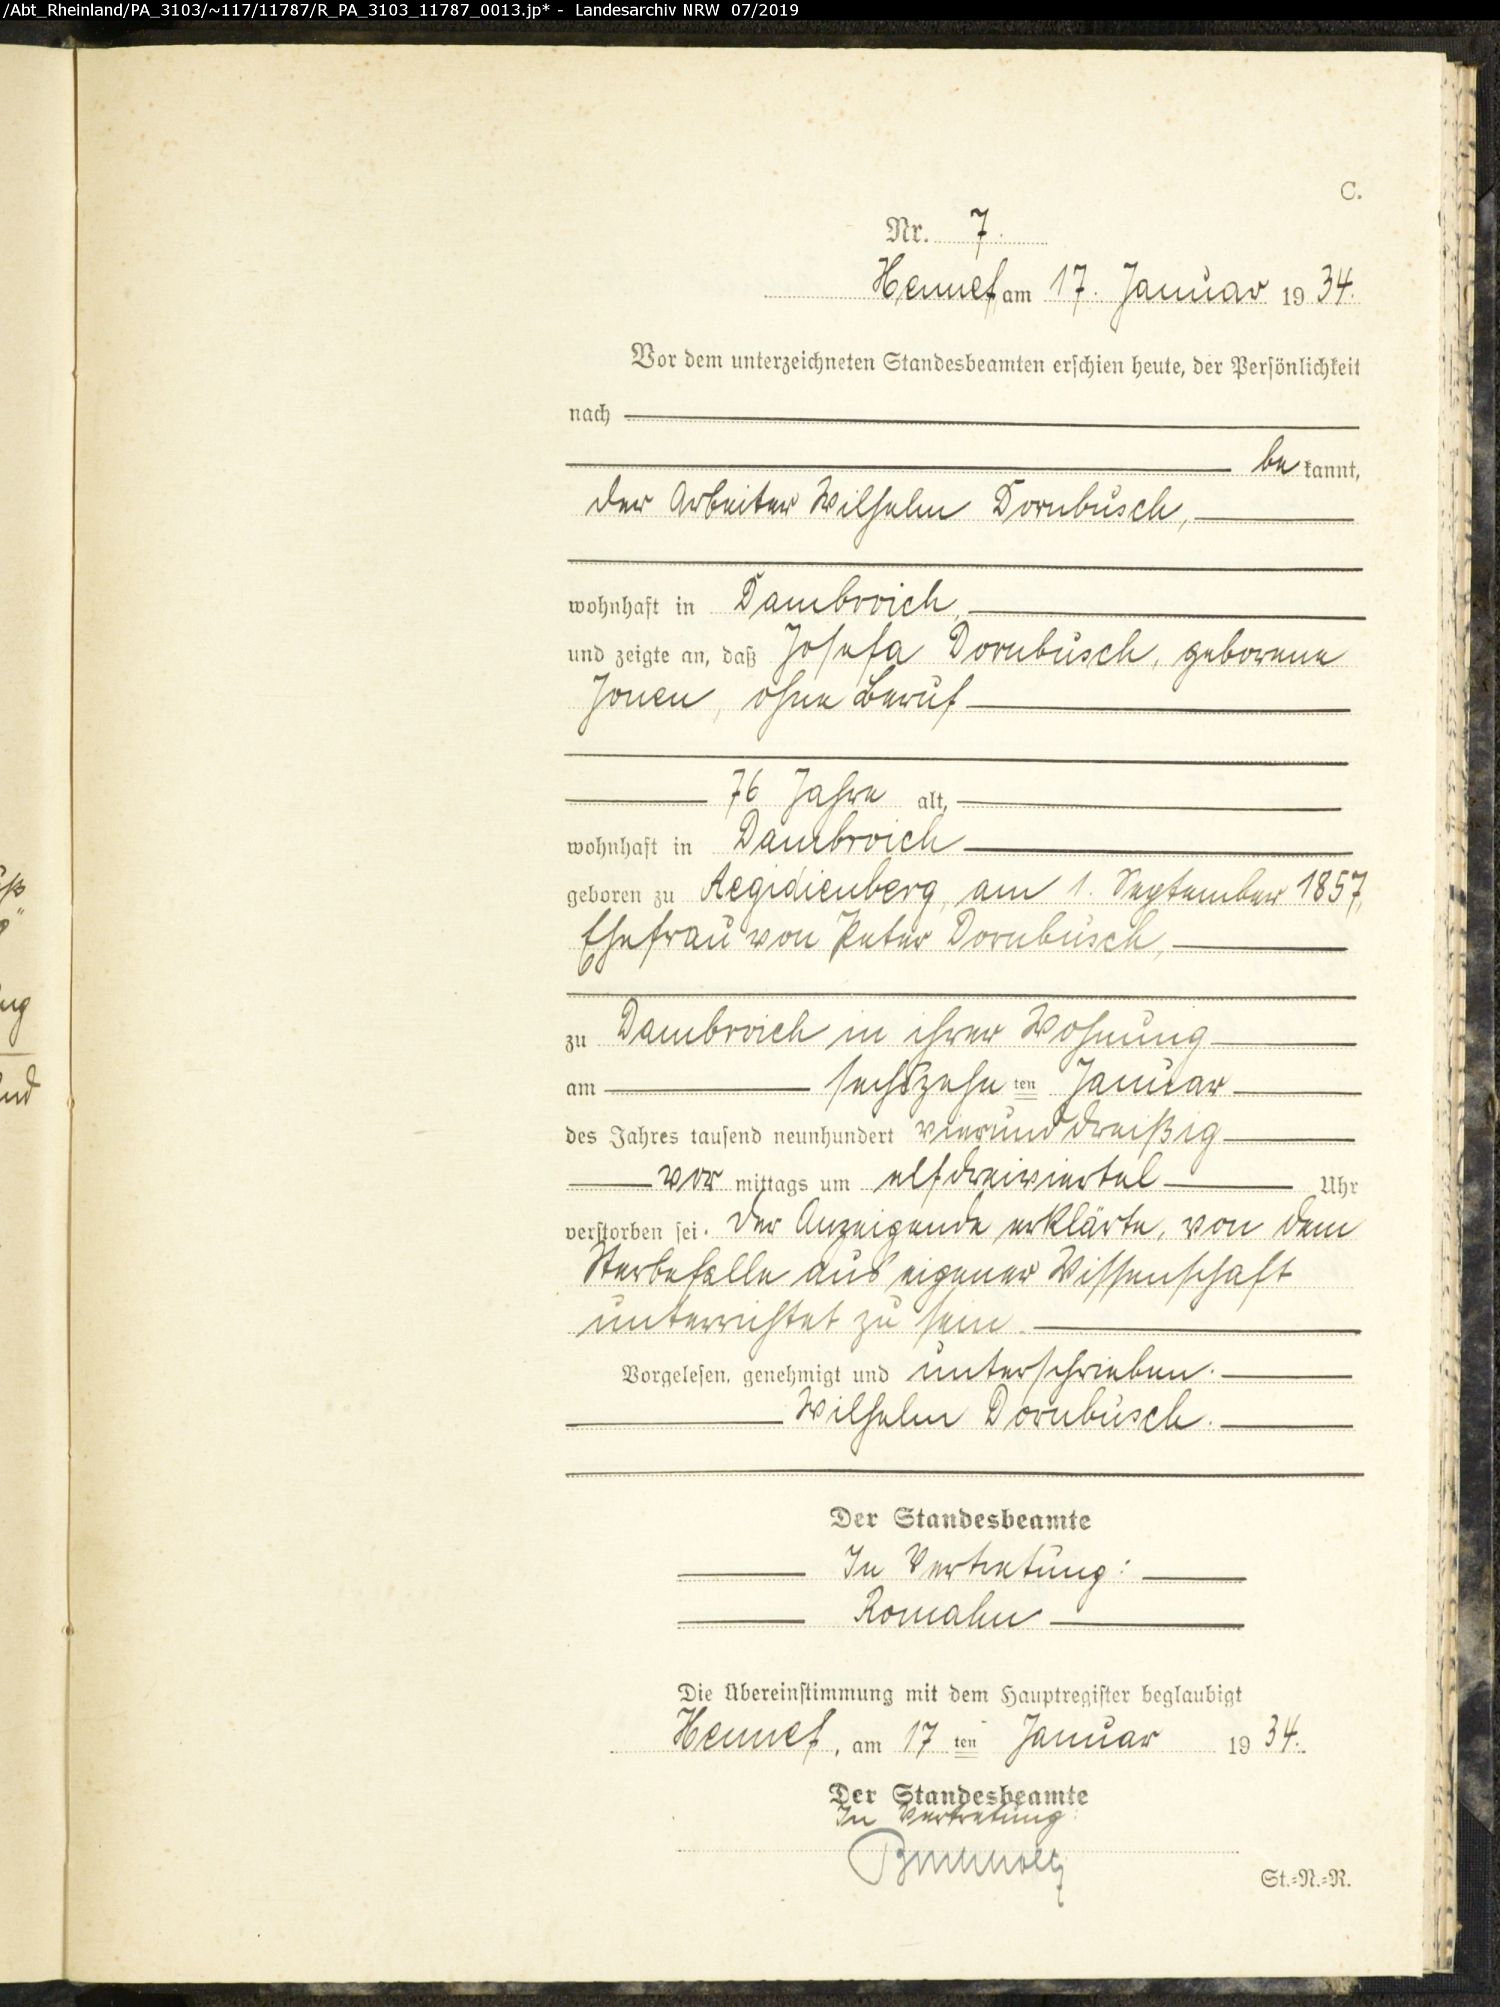 /Abt_Rheinland/PA_3103/~117/11787/R_PA_3103_11787_0013.jp* - Landesarchiv NRW 07/2019
C.
Nr. 7.
Hennef am 17. Januar 1934.
Vor dem unterzeichneten Standesbeamten erschien heute, der Persönlichkeit
nach
be kannt,
der Arbeiter Wilhelm Dornbusch,
wohnhaft in Dambroich,
und zeigte an, daß Josefa Dornbusch, geborene
Jonen, ohne Beruf
76 Jahre alt,
wohnhaft in Dambroich
geboren zu Aegidienberg, am 1. September 1857,
Ehefrau von Peter Dornbusch,
zu Dambroich in ihrer Wohnung
am sechszehn ten Januar
des Jahres tausend neunhundert vierunddreißig
vor mittags um elfdreiviertel Uhr
verstorben sei. Der Anzeigende erklärte, von dem
Sterbefalle aus eigener Wissenschaft
unterrichtet zu sein.
Vorgelesen, genehmigt und unterschrieben.
Wilhelm Dornbusch.
Der Standesbeamte
In Vertretung:
Romahn
Die Übereinstimmung mit dem Hauptregister beglaubigt
Hennef, am 17 ten Januar 1934.
Der Standesbeamte
In Vertretung:
St.=N.=R.
ß
ng
nd